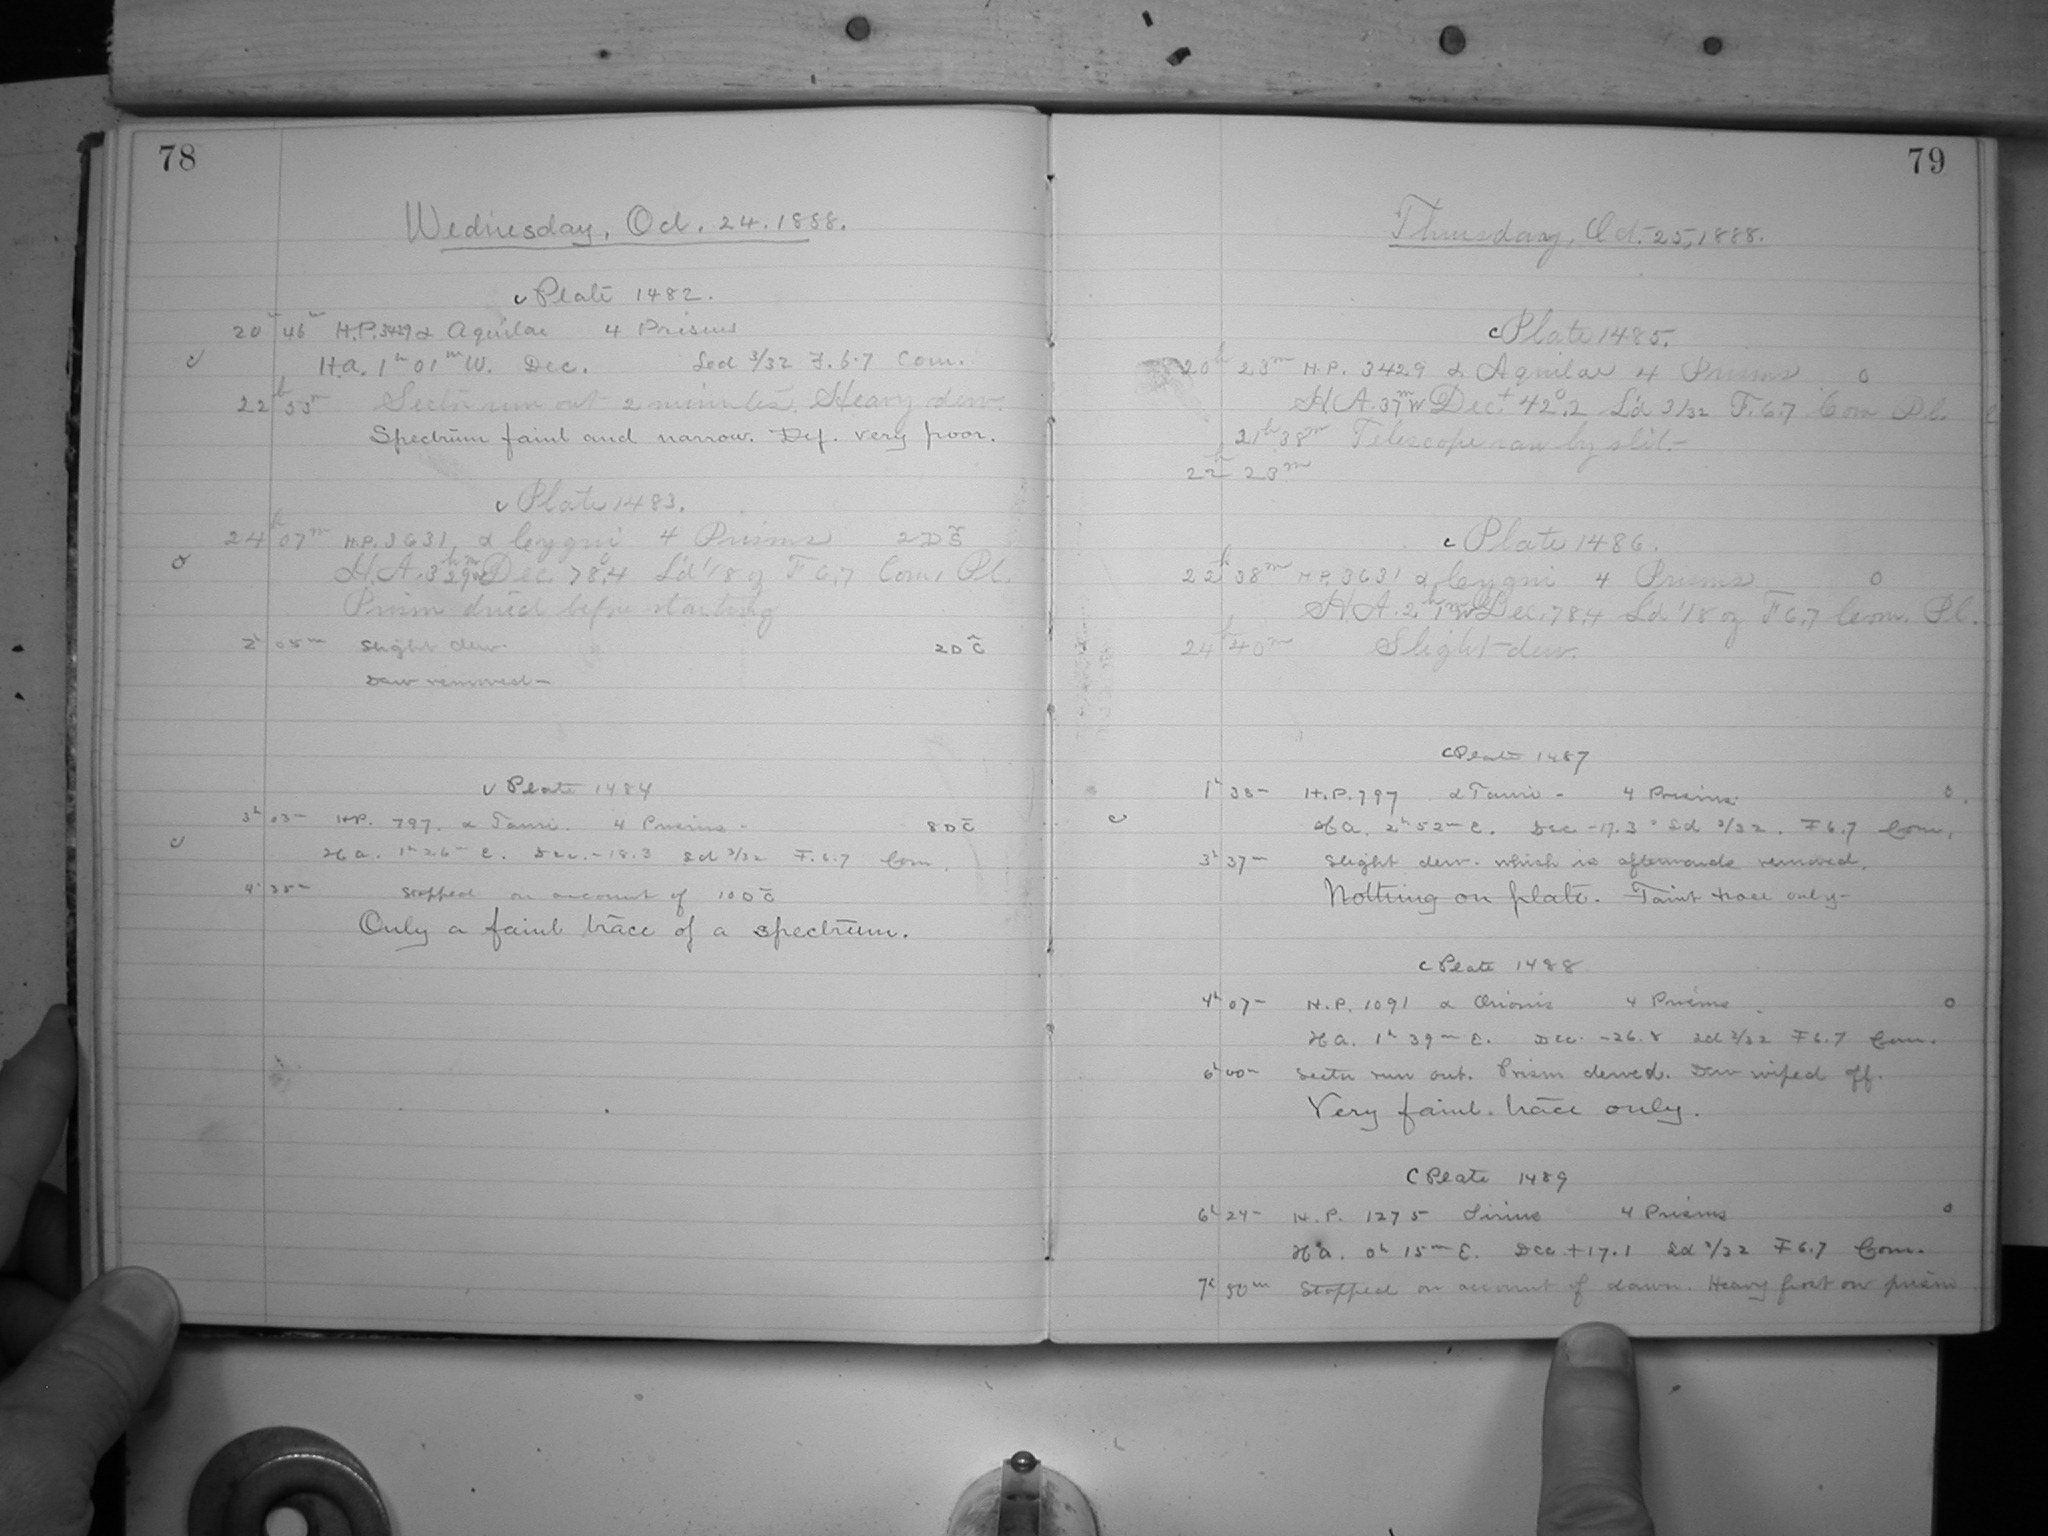 78
Wednesday, Oct. 24. 1888.
c Plate 1482.
20h 46m H.P. 3429 α Aquilae 4 Prisms
H.A. 1h 01m W. Dec. Led 3/32 F. 6.7 Com.
22h 53m Sector run out 2 minutes. Heavy dew.
Spectrum faint and narrow. Def. very poor.
c Plate 1483.
24h 07m H.P. 3631, α Cygni 4 Prisms 2 D C
H.A. 3h 29m W Dec. 78°.4 L'd '/8 of F 6.7 Com. Pl.
Prism dried before starting
2h 05m Slight dew. 2 D C
Dew removed—
c Plate 1484
3h 03m H.P. 797. α Tauri. 4 Prisms - 8 D C
H.A. 1h 26m E. Dec. - 18.3 Ld 3/32 F. 6.7 Com.
4h 35m Stopped on account of 10 D C
Only a faint trace of a spectrum.
79
Thursday, Oct. 25, 1888.
c Plate 1485.
20h 23m H.P. 3429 α Aquilae 4 Prisms 0
H.A. 37m W Dec. + 42°.2 L'd 3/32 F. 6.7 Com Pl.
21h 38m Telescope ran by slit-
22h 23m
c Plate 1486.
22h 38m H.P. 3631 α Cygni 4 Prisms 0
H.A. 2h 7m W Dec. 78.4 Ld '/8 of F 6.7 Com. Pl.
24h 40m Slight dew.
c Plate 1487
1h 35m H.P. 797 α Tauri - 4 Prisms. 0.
H.A. 2h 52m E. Dec - 17.3° Ld 3/32. F 6.7 Com.
3h 37m Slight dew. which is afterwards removed.
Nothing on plate. Faint trace only-
c Plate 1488
4h 07m H.P. 1091 α Orionis 4 Prisms. 0
H.A. 1h 39m E. Dec. - 26.8 Ld 3/32 F 6.7 Com.
6h 00m Sector run out. Prism dewed. Dew wiped off.
Very faint. trace only.
C Plate 1489
6h 24m H.P. 1275 Sirius 4 Prisms 0
H.A. 0h 15m E. Dec. + 17.1 Ld 3/32 F 6.7 Com.
7h 50m Stopped on account of dawn. Heavy frost on prism